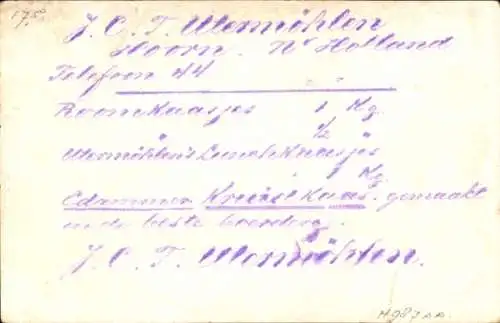 175
J. C. T. Utermöhlen
Hoorn. N. Holland
Telefoon 44
Roomkaasjes 1 Kg.
1/2 "
Utermöhlen's Lunch Kaasjes
1 Kg.
Edammer Kaas. gemaakt
in de beste boerderij.
J. C. T. Utermöhlen.
H987AA